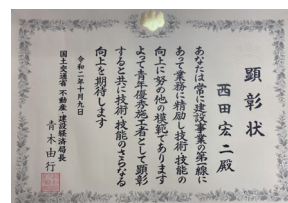 顕彰状
西田宏二殿
あなたは常に建設事業の第一線に
あって業務に精励し技術・技能の
向上に努め他の模範であります
よって青年優秀施工者として顕彰
すると共に技術・技能のさらなる
向上を期待します
令和二年十月九日
国土交通省 不動産・建設経済局長
青木由行